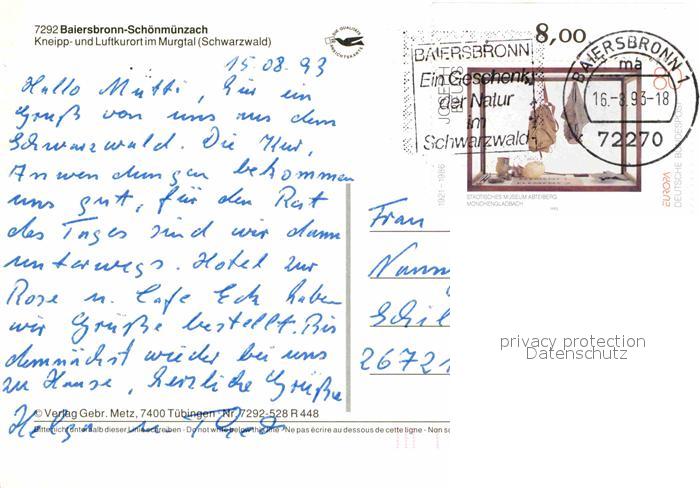 7292 Baiersbronn-Schönmünzach
Kneipp- und Luftkurort im Murgtal (Schwarzwald)
15.08.93
Hallo Mutti, hier ein
Gruß von uns aus dem
Schwarzwald. Die Kur,
Anwendungen bekommen
uns gut, für den Rest
des Tages sind wir dann
unterwegs. Hotel zur
Rose u. Cafe Eck haben
wir Grüße bestellt. Bis
demnächst wieder bei uns
zu Hause, herzliche Grüße
Helga u.
© Verlag Gebr. Metz, 7400 Tübingen · Nr. 7292-528 R 448
Bitte nicht unterhalb dieser Linie schreiben - Do not write below this line - Ne pas écrire au dessous de cette ligne - Non s
8,00
BAIERSBRONN
Ein Geschenk
der Natur
im
Schwarzwald
BAIERSBRONN 1
ma
16.-8.93-18
72270
JOSEPH BEUYS
1921-1986
STÄDTISCHES MUSEUM ABTEIBERG
MÖNCHENGLADBACH
EUROPA
DEUTSCHE BUNDESPOST
Frau
Nann
Schil
26721
privacy protection
Datenschutz